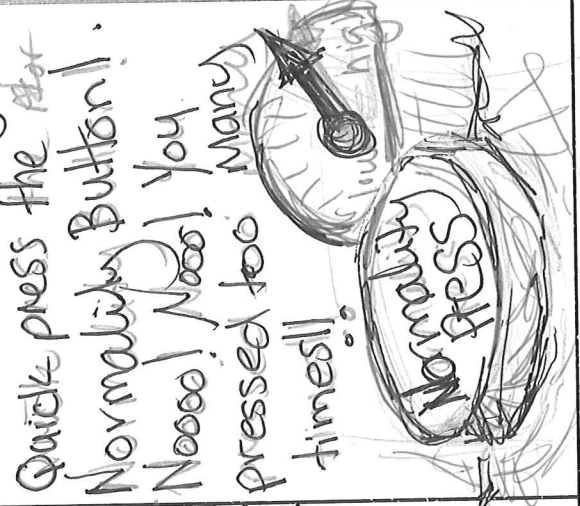 Quick press the
Normality Button!.
Noooo! Nooo! You
pressed too many
times!!
high
Normality
Press